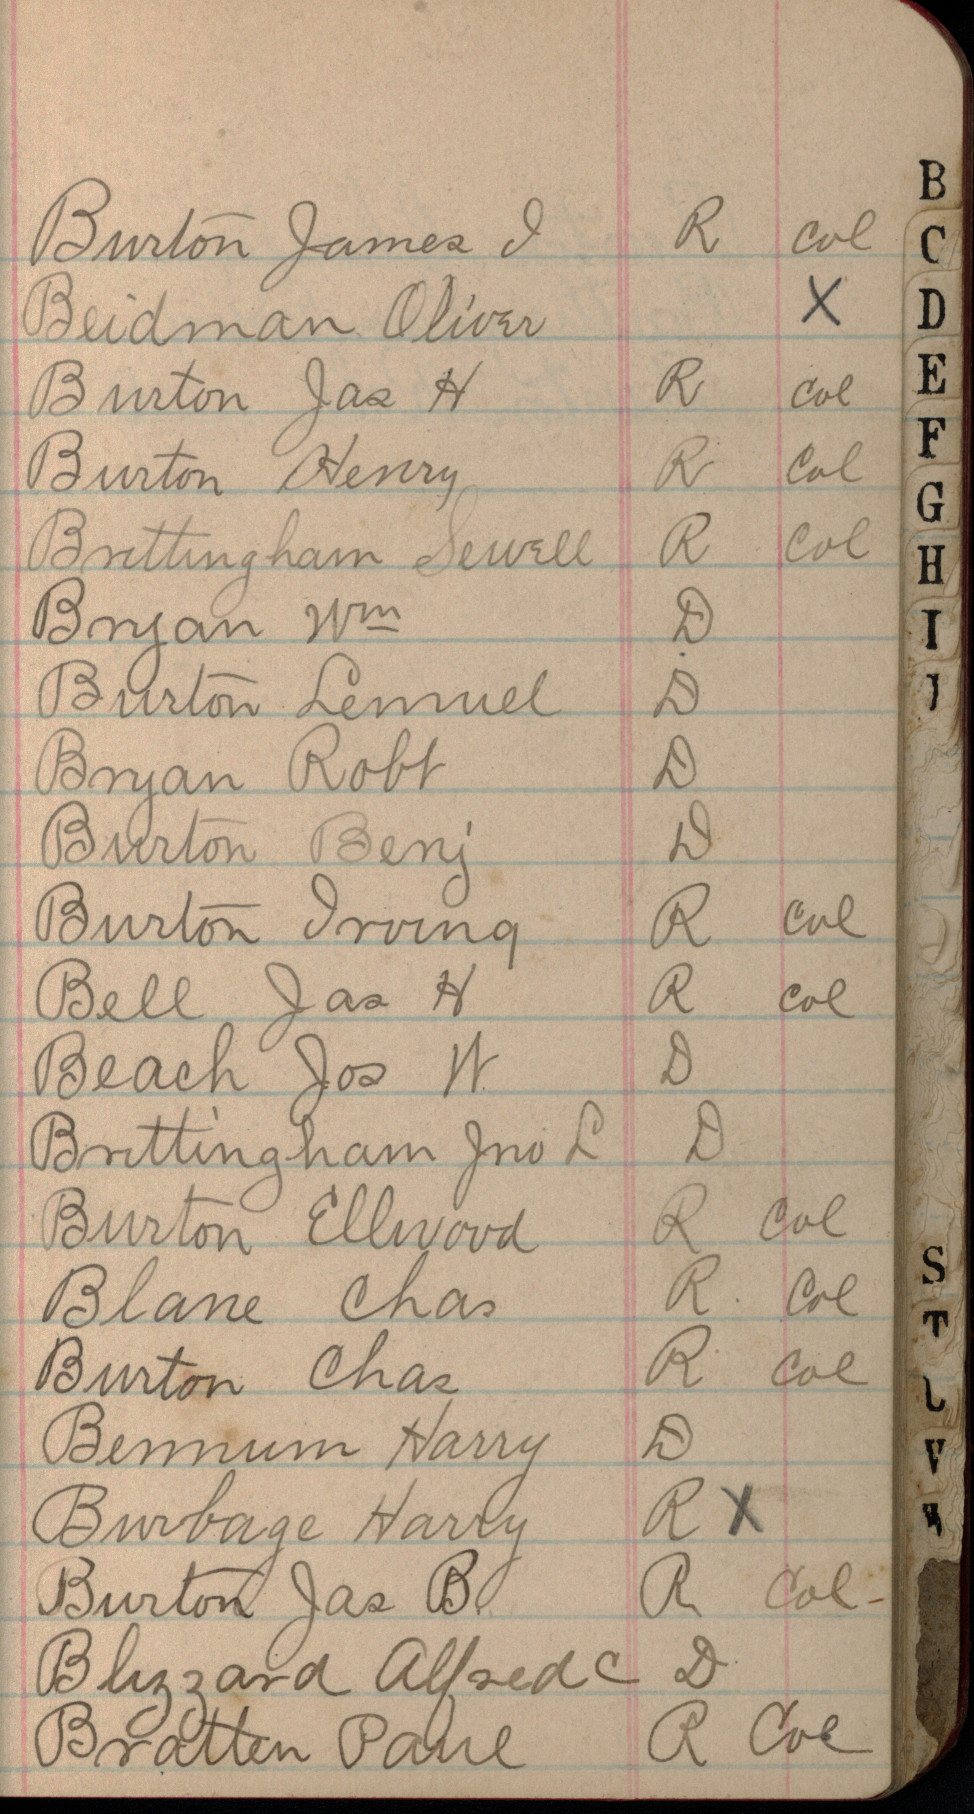 Burton James I R col
Beidman Oliver X
Burton Jas H R col
Burton Henry R Col
Brittingham Sewell R Col
Bryan Wm D
Burton Lemuel D
Bryan Robt D
Burton Benj D
Burton Irving R col
Bell Jas H R col
Beach Jos W. D
Brittingham Jno L D
Burton Ellwood R Col
Blane Chas R. Col
Burton Chas R Col
Bennum Harry D
Burbage Harry R X
Burton Jas B. R Col-
Blizzard Alfred C D
Bratten Paul R Col
B
C
D
E
F
G
H
I
J
S
T
V
W